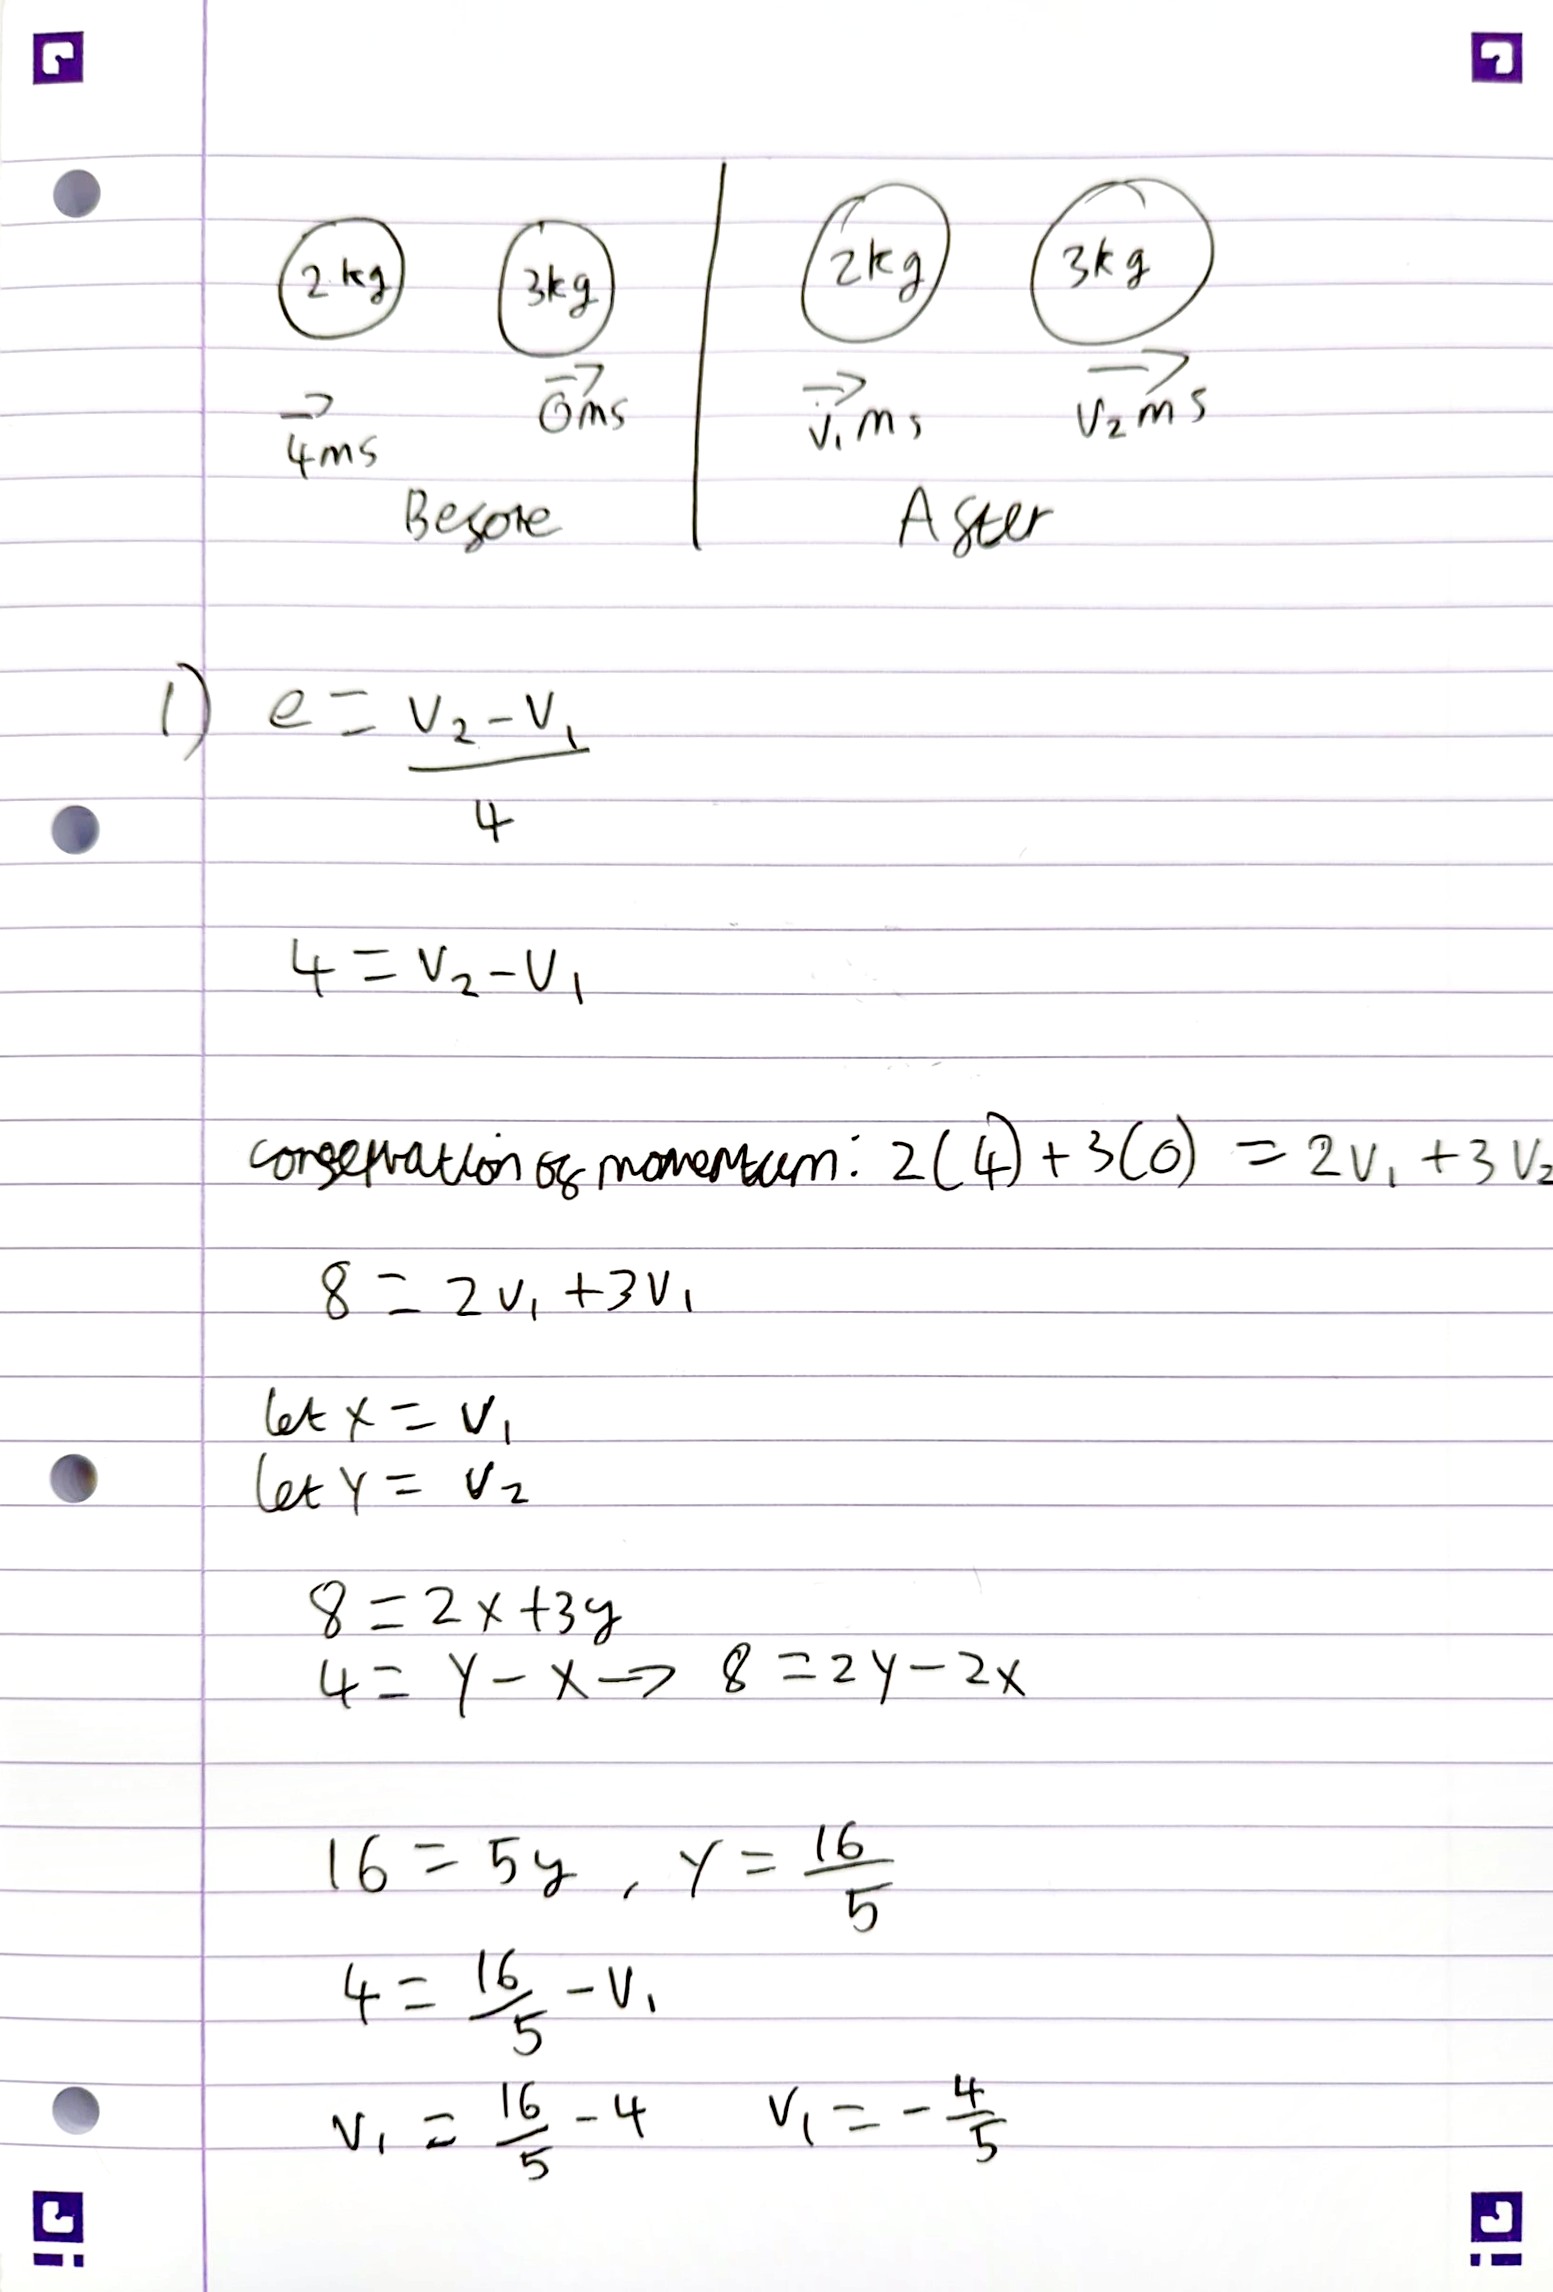 2kg 3kg 2kg 3kg
→ 4ms → 0ms → v₁ms → v₂ms
Before After
1) e = v₂-v₁/4
4 = v₂-v₁
conservation of momentum: 2(4)+3(0) = 2v₁+3v₂
8 = 2v₁+3v₁
let x = v₁
let y = v₂
8 = 2x+3y
4 = y-x → 8 = 2y-2x
16 = 5y, y = 16/5
4 = 16/5 - v₁
v₁ = 16/5 - 4 v₁ = -4/5